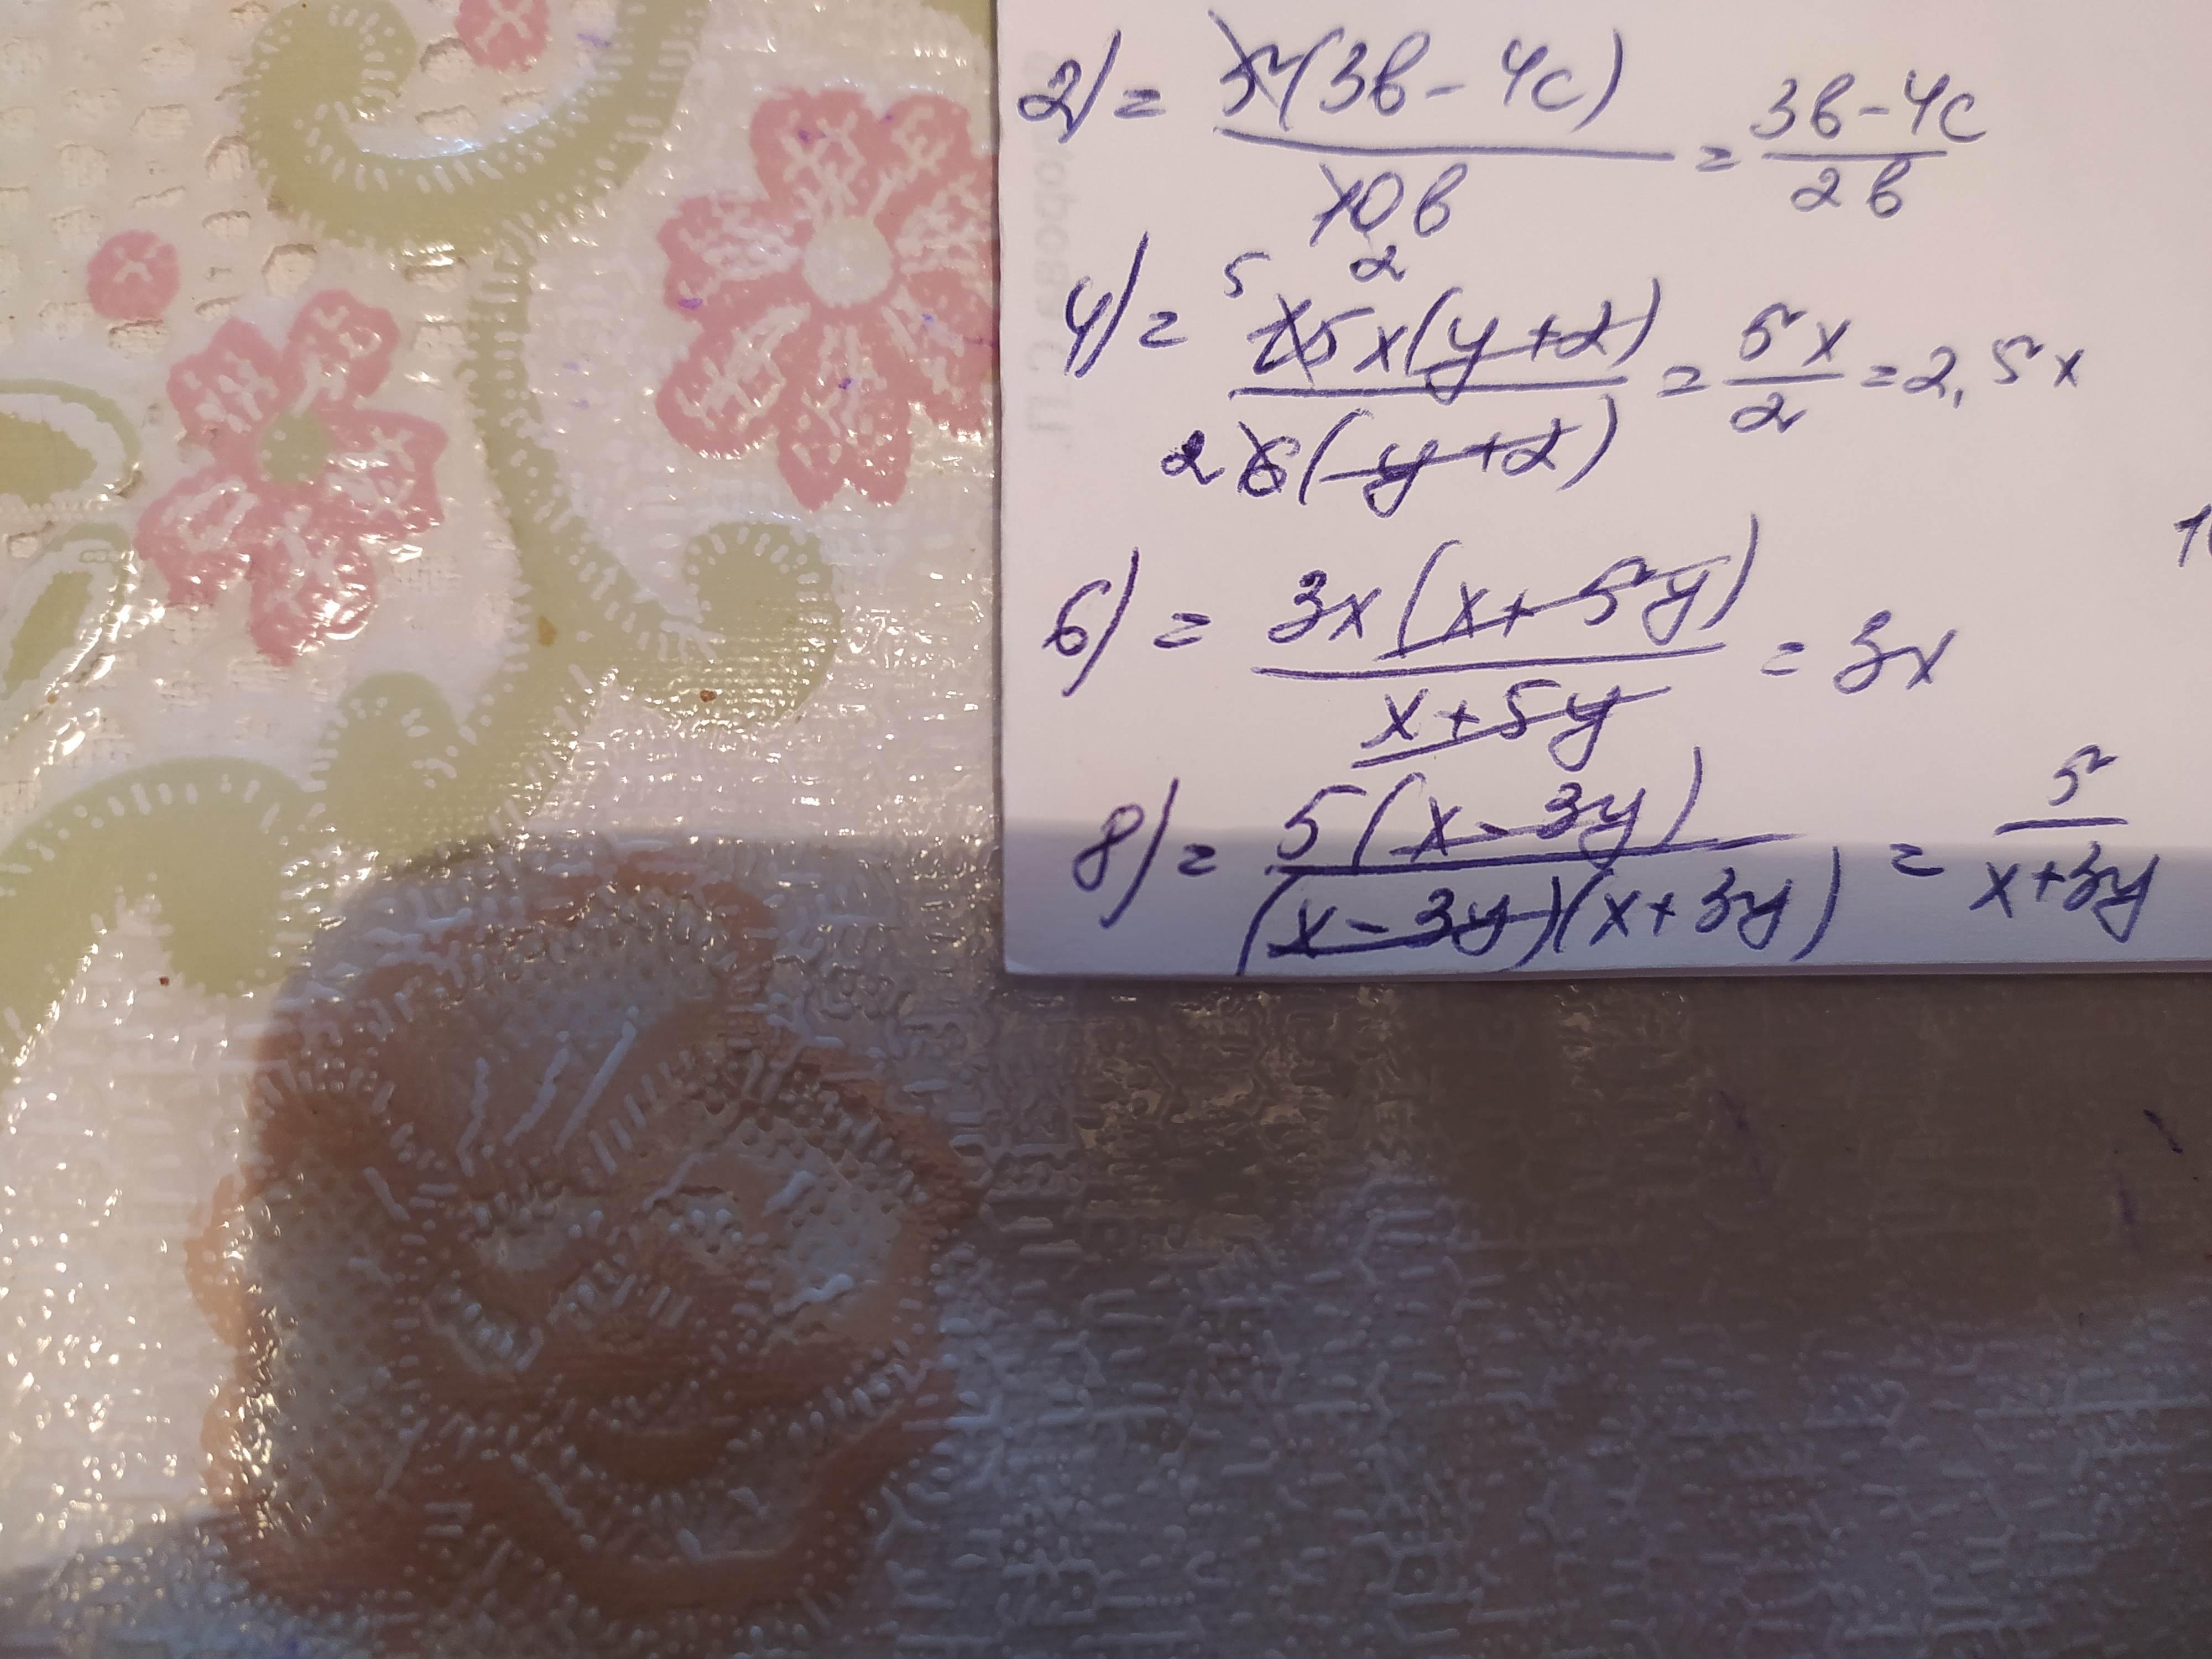 2) = 5(3b - 4c) / 10b 2 = 3b - 4c / 2b
4) = 5 15x(y + 2) / 2 6(y + 2) = 5x / 2 = 2,5x
6) = 3x(x + 5y) / x + 5y = 3x
8) = 5(x - 3y) / (x - 3y)(x + 3y) = 5 / x + 3y